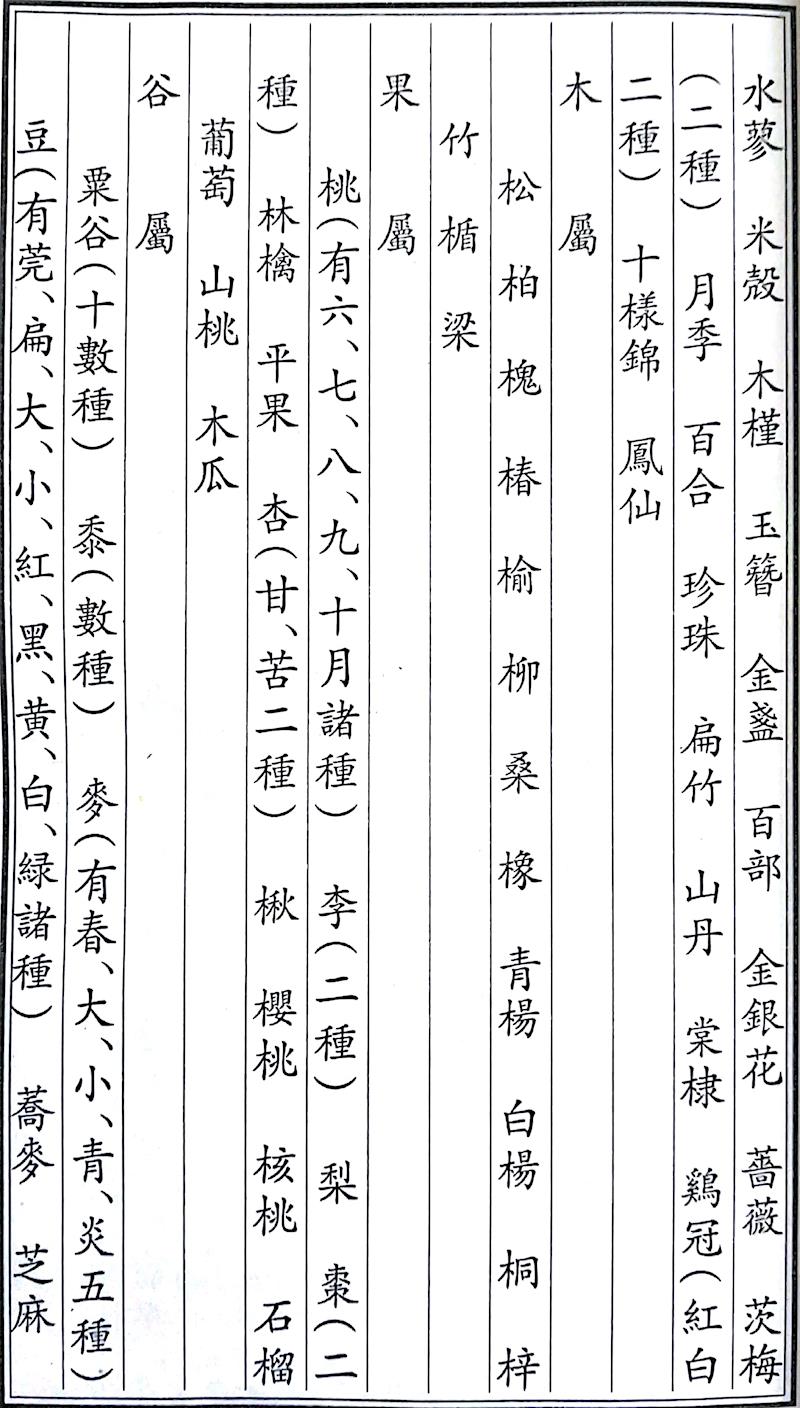 水蓼 米殼 木槿 玉簪 金盞 百部 金銀花 薔薇 茨梅
(二種) 月季 百合 珍珠 扁竹 山丹 棠棣 鷄冠(紅白
二種) 十樣錦 鳳仙
木 屬
松 柏 槐 椿 榆 柳 桑 橡 青楊 白楊 桐 梓
竹 楯 梁
果 屬
桃(有六、七、八、九、十月諸種) 李(二種) 梨 棗(二
種) 林檎 平果 杏(甘、苦二種) 楸 櫻桃 核桃 石榴
葡萄 山桃 木瓜
谷 屬
粟谷(十數種) 黍(數種) 麥(有春、大、小、青、炎五種)
豆(有莞、扁、大、小、紅、黑、黄、白、緑諸種) 蕎麥 芝麻